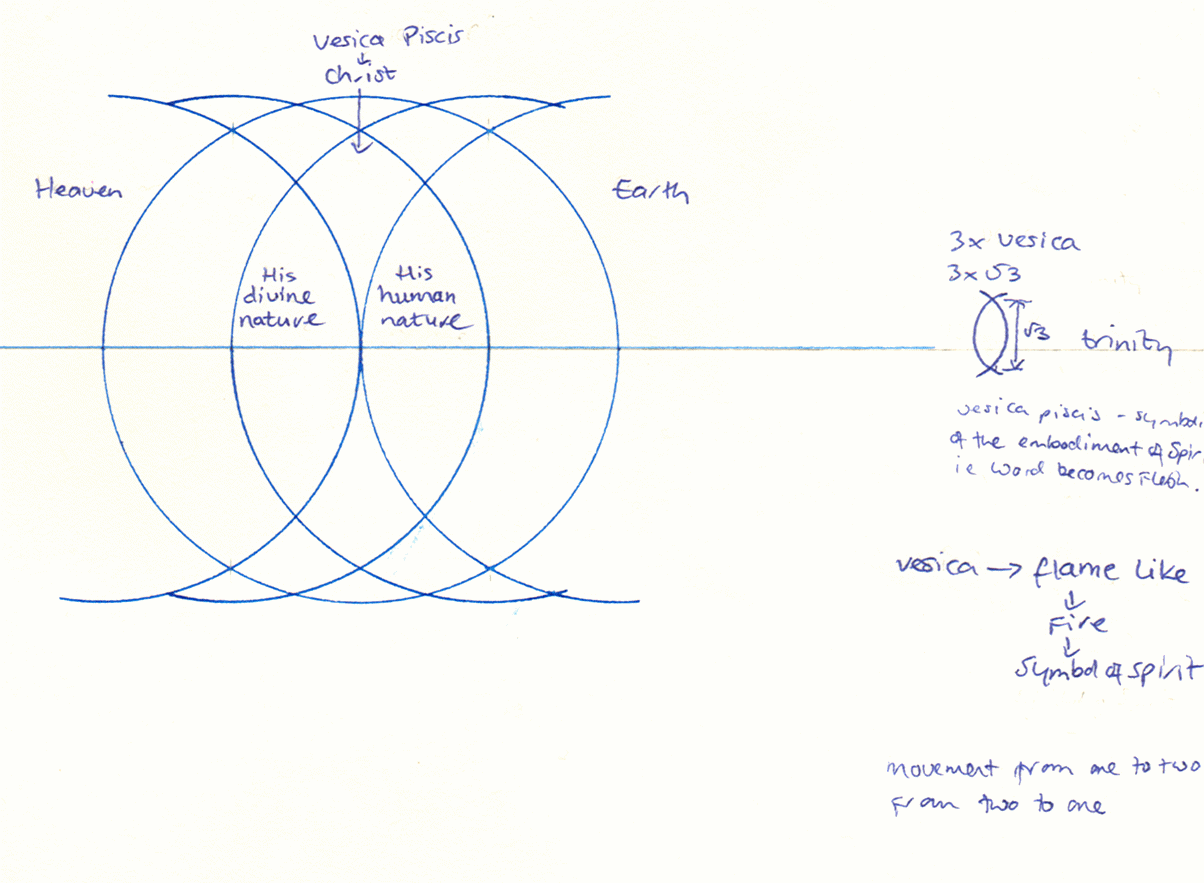 Vesica Piscis
↓
Christ
Heaven
Earth
His
divine
nature
His
human
nature
3x vesica
3x √3
√3
trinity
vesica piscis - symbol
of the embodiment of Spir
ie Word becomes Flesh.
vesica → flame like
↓
Fire
↓
Symbol of spirit
movement from one to two
from two to one